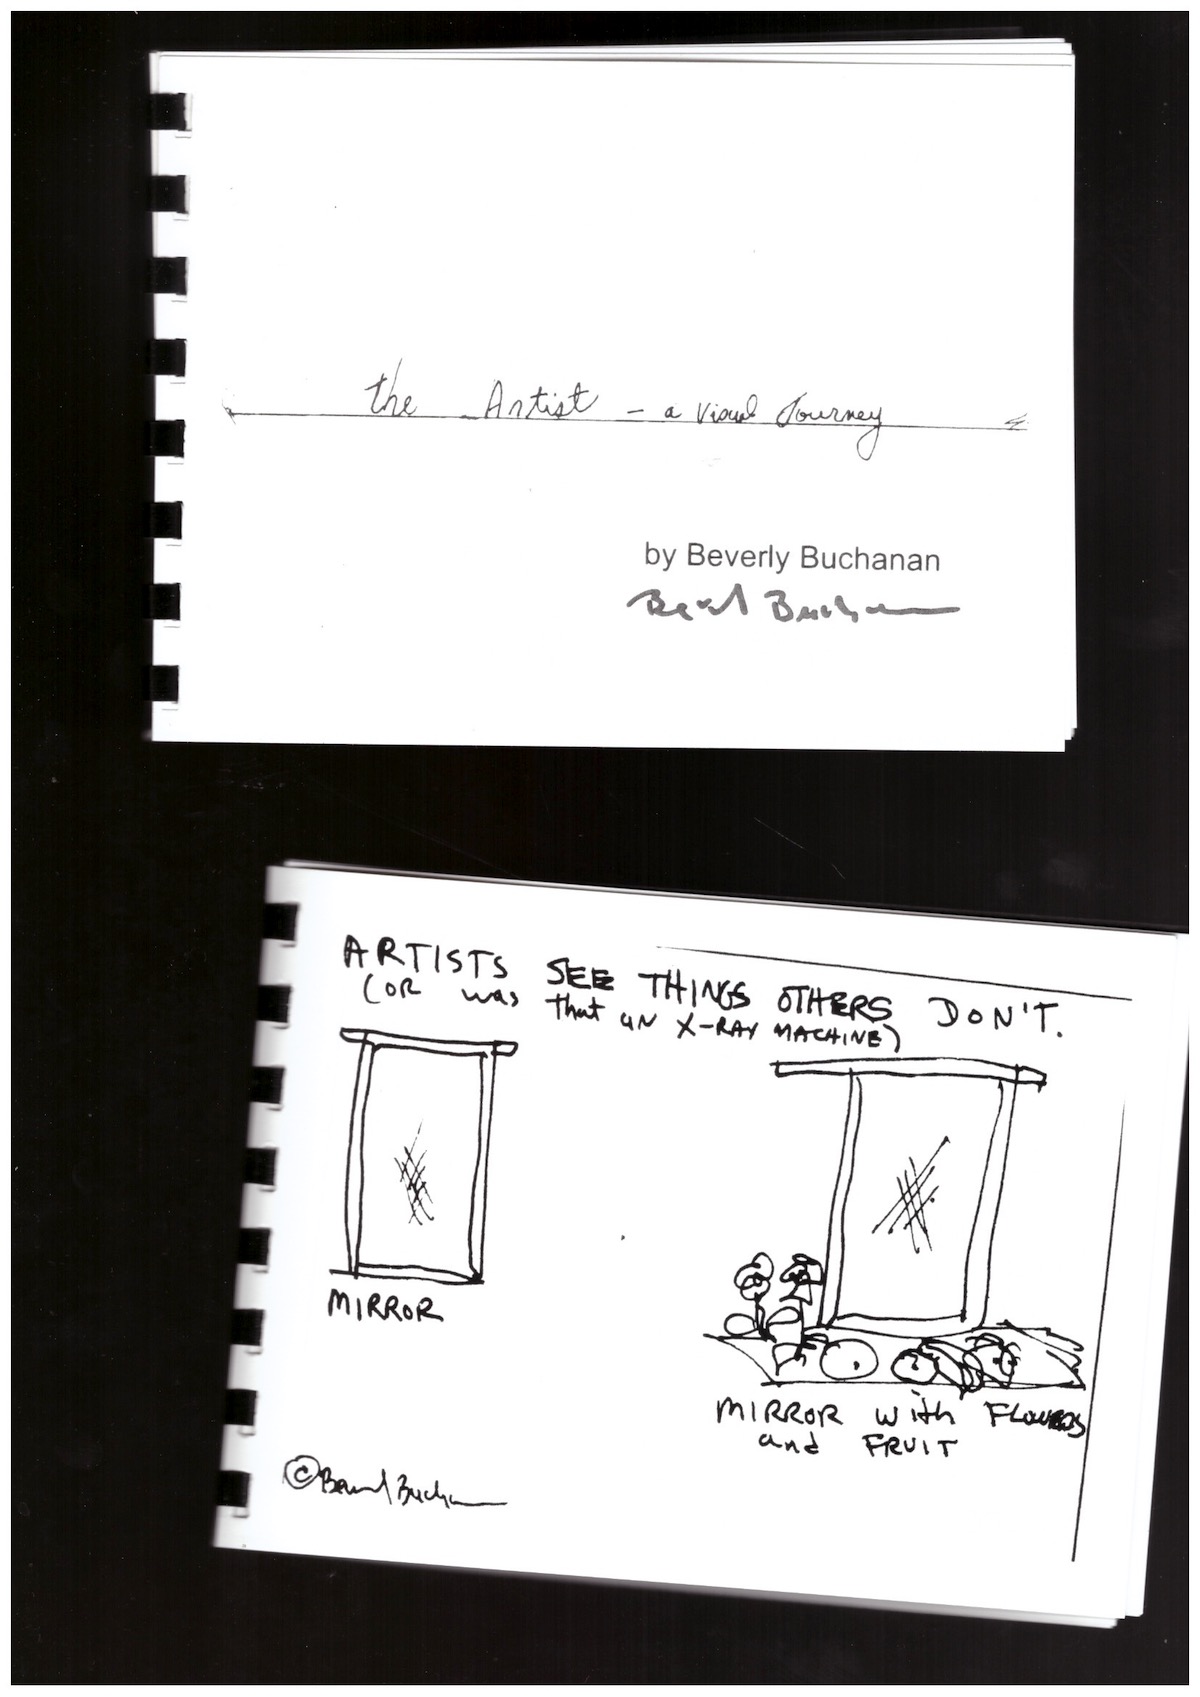 the Artist – a visual Journey
by Beverly Buchanan
Beverly Buchanan
ARTISTS SEE THINGS OTHERS DON'T.
(OR was that an X-RAY MACHINE)
MIRROR
MIRROR with FLOWERS
and FRUIT
© Beverly Buchanan